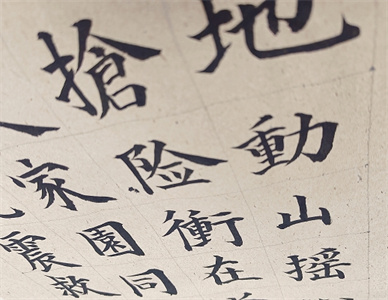 地動山摇
搶险衝在
家園同
震救